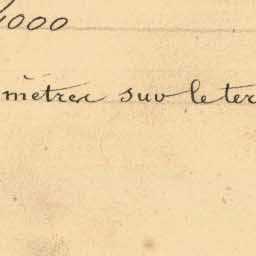 1000
mètres sur le ter